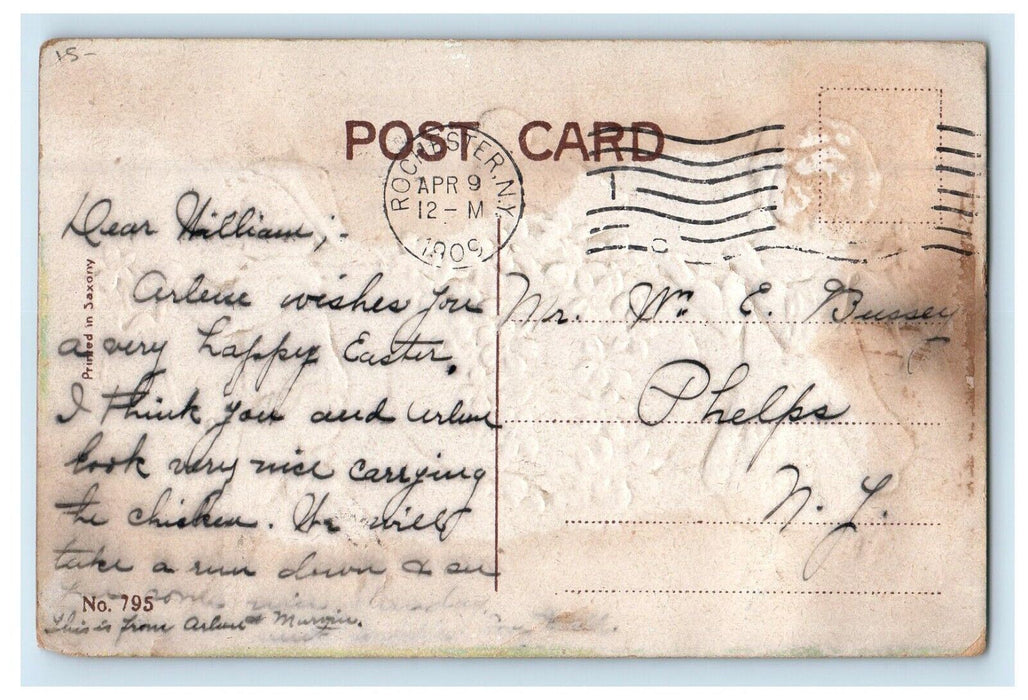 15-
POST CARD
ROCHESTER, N.Y.
APR 9
12 - M
1909
1
C
Dear William;-
Arlene wishes you
a very happy Easter.
I think you and Arlene
look very nice carrying
the chicken. We will
take a run down & see
you some
This is from Arlene & Marvin.
Printed in Saxony
No. 795
Mr. Wm E. Bussey
Phelps
N. Y.